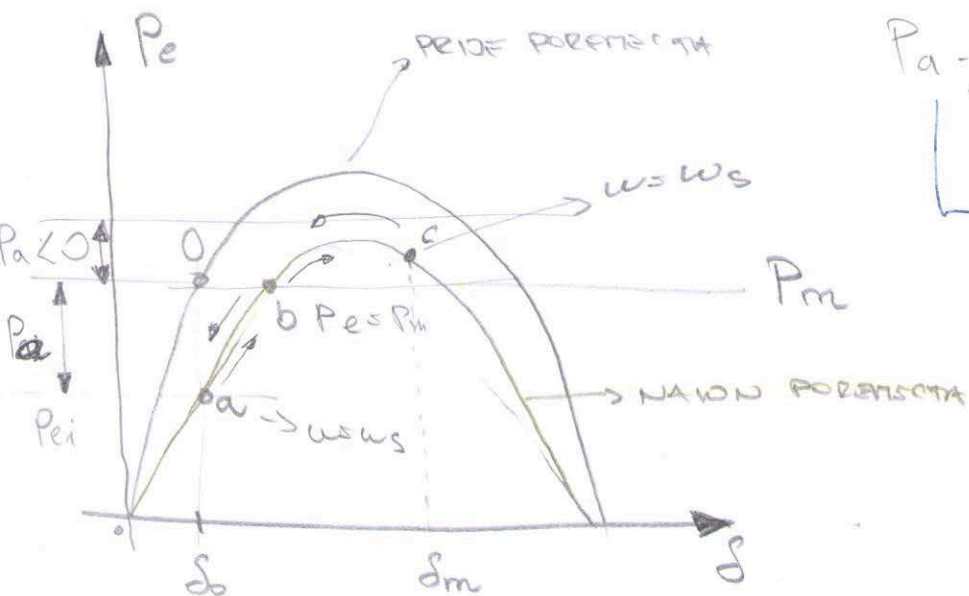 Pe
PRIJE POREMEĆAJA
Pa -
ω = ωs
Pa < 0
0
c
Pm
b Pe = Pm
Pa
a → ω = ωs
→ NAKON POREMEĆAJA
Pei
0
δ0
δm
δ